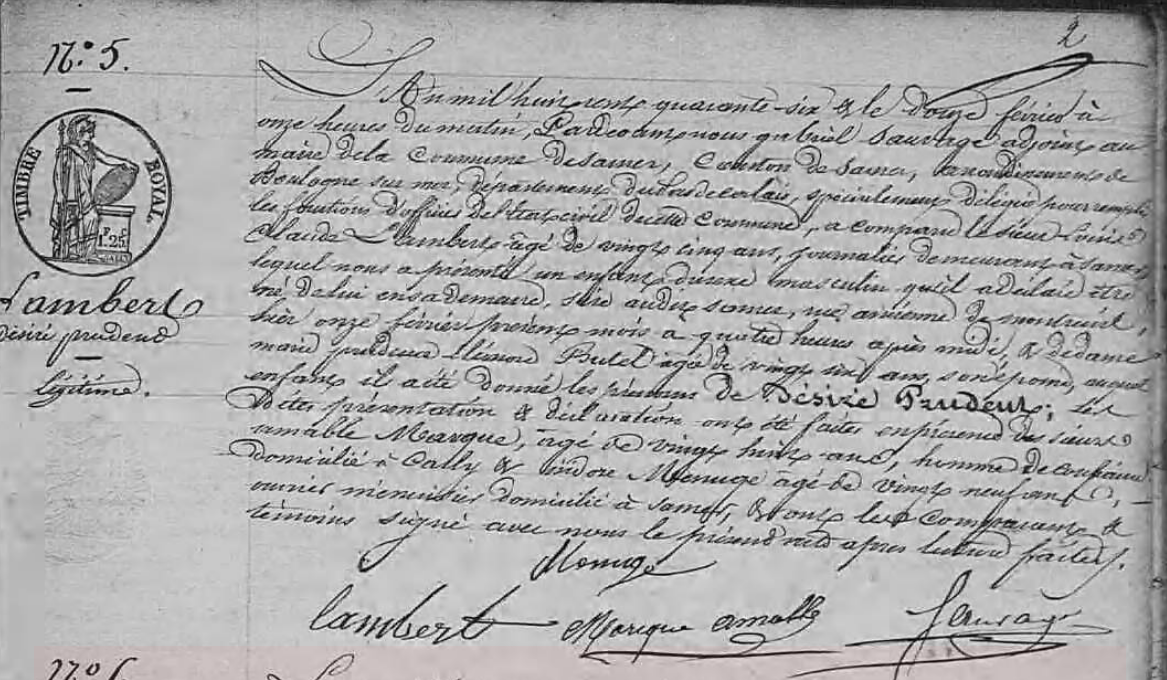 2
N.° 5.
TIMBRE ROYAL.
1F. 25C
Lambert
désiré prudent
légitime.
L'An mil huit cent quarante-six & le douze février à
onze heures du matin, Pardevant nous gabriel Sauvage adjoint au
maire de la Commune de Samer, Canton de Samer, arrondissement de
Boulogne sur mer, département du Pas de calais, spécialement délégué pour remplir
les fonctions d'officier de l'Etat civil de cette Commune, a comparu le sieur Louis
Claude Lambert âgé de vingt cinq ans, journalier demeurant à Samer
lequel nous a présenté un enfant du sexe masculin qu'il a déclaré être
né de lui en sa demeure, sise audit Samer, rue ancienne de montreuil,
hier onze février présent mois à quatre heures après midi, & de dame
marie prudence Eléonore Butel âgée de vingt ans, son épouse, auquel
enfant il a été donné les prénoms de Désiré Prudent; Les
dites présentation & déclaration ont été faites en présence des sieurs
amable Marque, âgé de vingt huit ans, homme de confiance
domicilié à Cally & isidore Menuge âgé de vingt neuf ans,
ouvrier menuisier domicilié à Samer, & ont les Comparant &
témoins signé avec nous le présent acte après lecture faite.
Menuge
Lambert Marque amable Sauvage
N.° 6